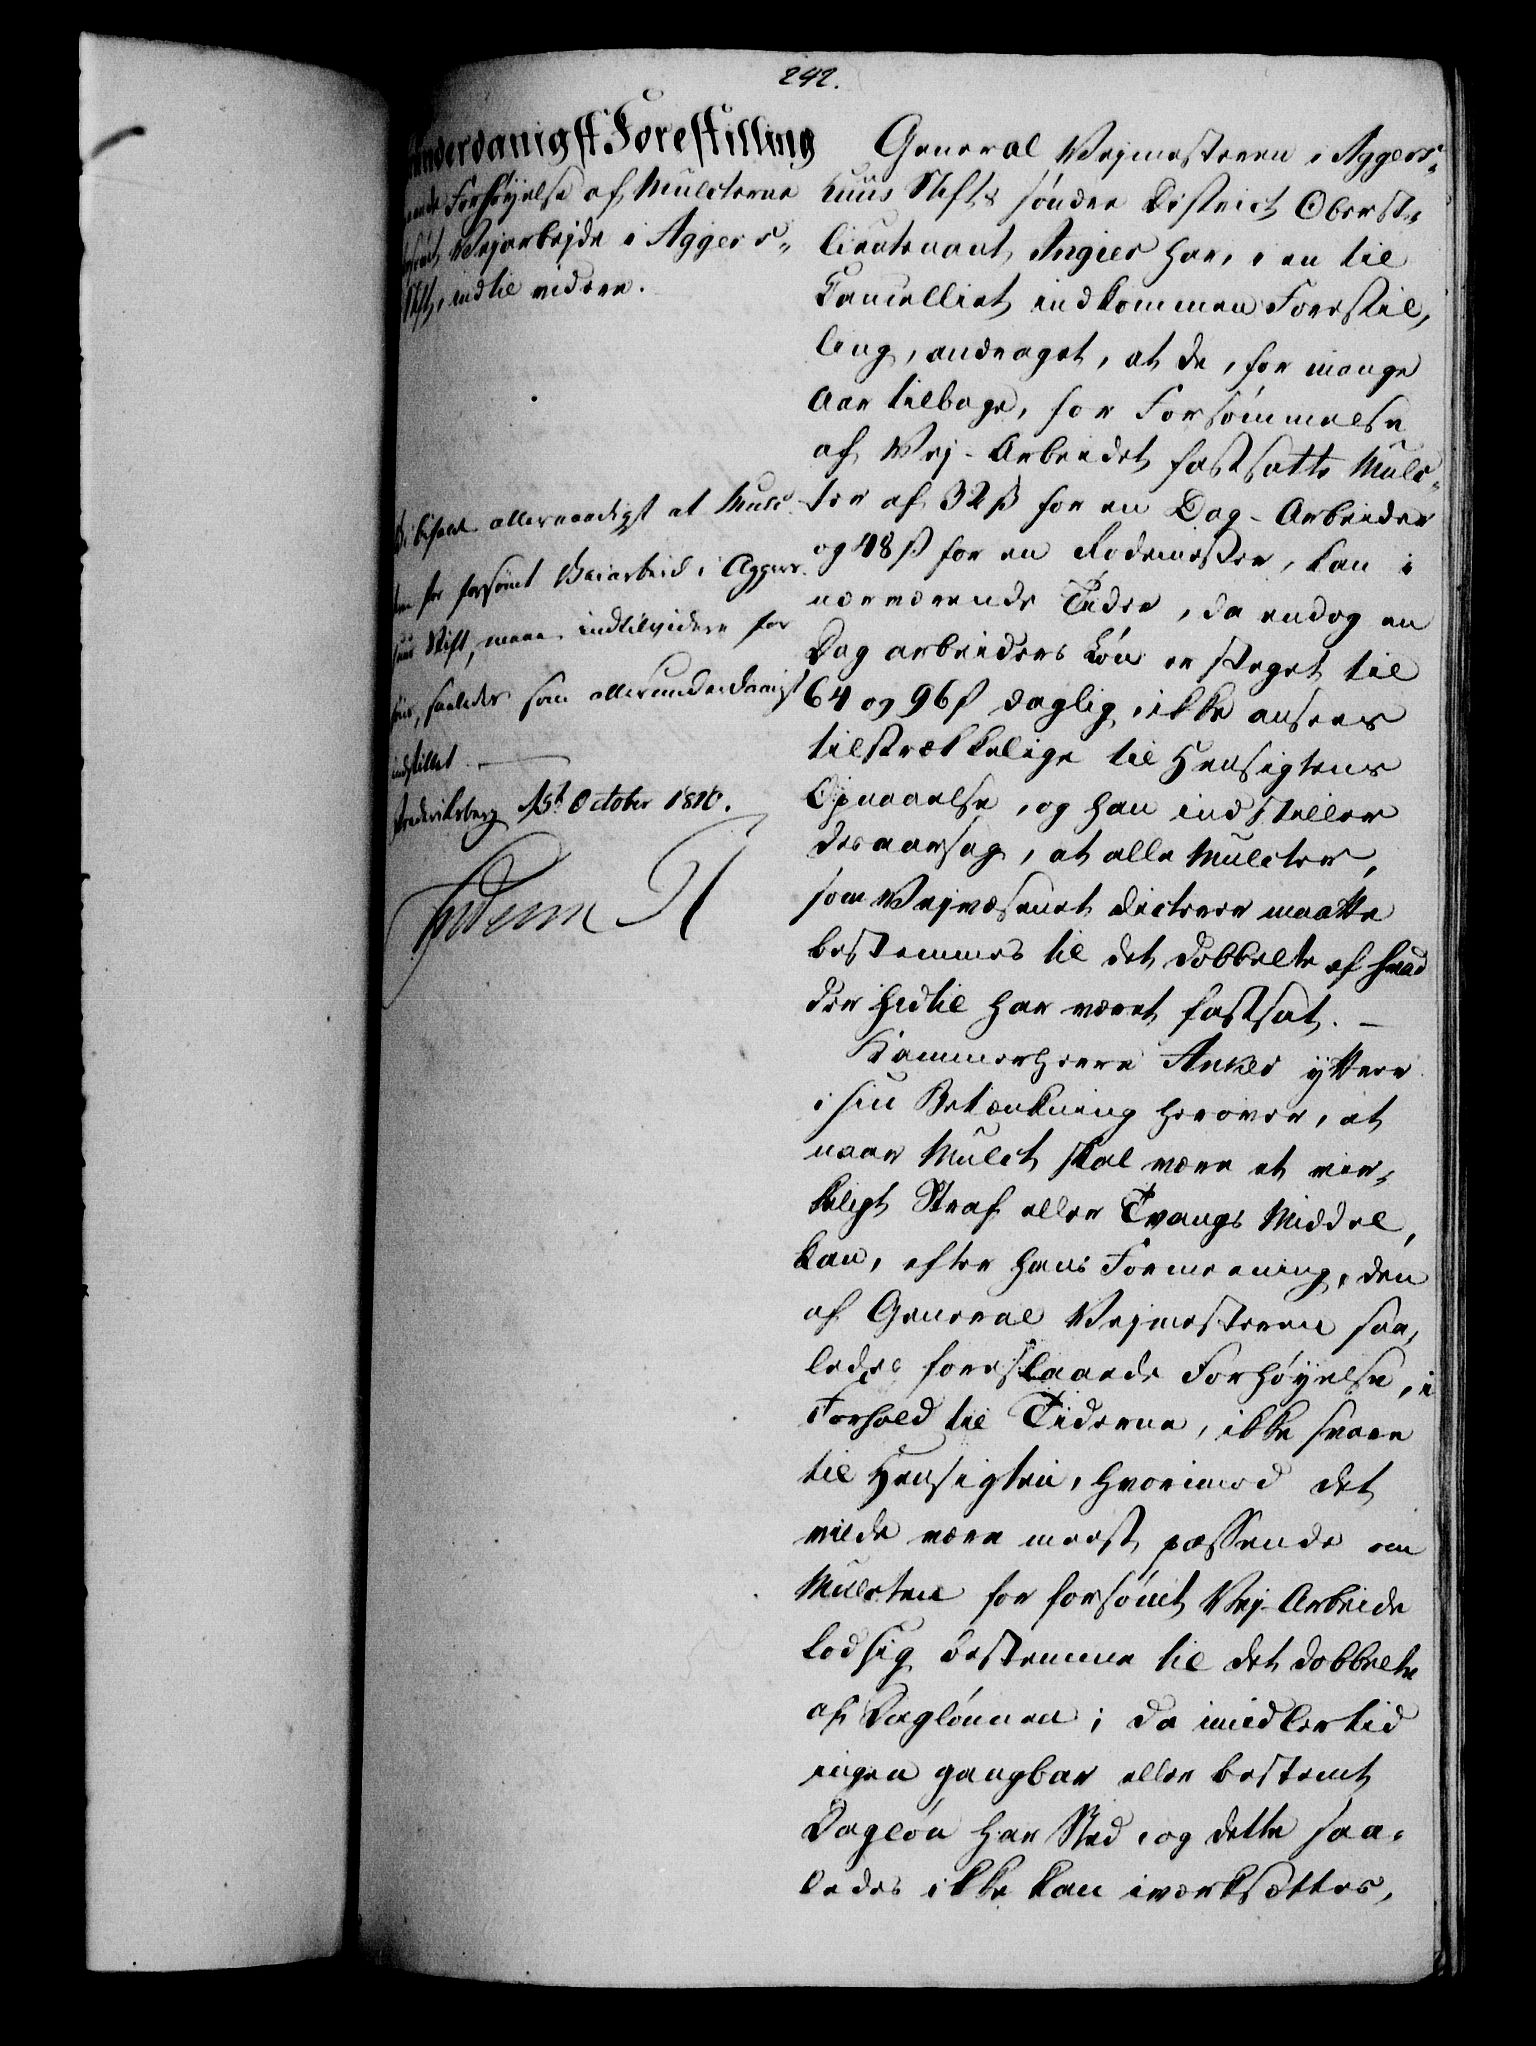 242.
underdanigst Forestilling
Forhøyelse af Mulcterne
Vejarbejde i Aggers-
Stift, indtil videre.
Vi bifalde allernaadigst at Mulc-
ten for forsømt Veiarbeid i Aggers-
huus Stift, maae indtilvidere for
høies, saaledes som allerunderdanigst
indstillet.
Frederiksberg 15de October 1810.
Frederik R
General Vejmesteren i Aggers-
huus Stifts søndre District Oberst-
lieutenant Angier har, i en til
Cancelliet indkommen Forestil-
ling, andraget, at de, for mange
Aar tilbage, for Forsømmelse
af Vej-Arbeidet fastsatte Mulc-
ter af 32 ß for en Dag-Arbeider
og 48 ß for en Rodemester, kan i
nærværende Tider, da endog en
Dag arbeiders Løn er steget til
64 og 96 ß daglig, ikke ansees
tilstrækkelige til Hensigtens
Opnaaelse, og han indstiller
desaarsag, at alle Mulcter,
som Vejvæsenet dicterer maatte
bestemmes til det dobbelte af hvad
der hidtil har været fastsat. –
Kammerherre Anker yttrer
i sin Betænkning herover, at
naar Mulct skal være et vir-
keligt Straf eller Tvangs Middel,
kan, efter hans Formeening, den
af General Vejmesteren saa-
ledes foreslaaede Forhøyelse, i
Forhold til Tiderne, ikke svare
til Hensigten, hvorimod det
vilde være meest passende om
Mulcten for forsømt Vej-Arbeide
lod sig bestemme til det dobbelte
af Daglønnen; da imidlertid
ingen gangbar eller bestemt
Dagløn har Sted, og dette saa-
ledes ikke kan iværksættes,